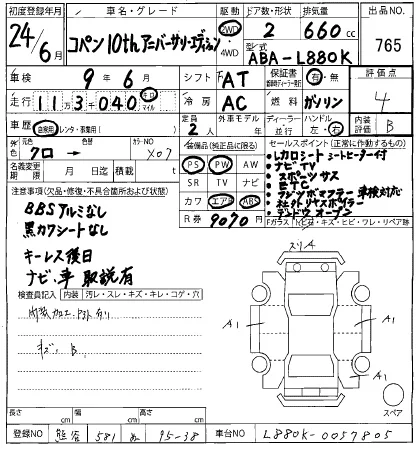 初度登録年月 24年/6月
車名・グレード コペン 10th アニバーサリーエディション
駆動 2WD 4WD
ドア数・形状 2
排気量 660 cc
型式 ABA-L880K
出品NO. 765
車検 9年 6月
シフト FAT
保証書 有・無
評価点 4
走行 11万3千040 キロ マイル
冷房 AC
燃料 ガソリン
車歴 自家用・レンタ・事業用( )
定員 2人
ディーラー
ハンドル 左・右
内装評価 B
外色 元色 クロ 色替 カラーNO X07
名義変更期限 月 日迄
積載量 t
装備品(純正品に限る)
PS PW AW
SR TV ナビ
カワ エアB ABS
R券 9070円
セールスポイント(正常に作動するもの)
・レカロシート シートヒーター付
・ナビ・TV
・スポーツサス
・ETC
・フジツボマフラー 車検対応
・社外リヤスポイラー
・デンドウオープン
Fガラス
注意事項(欠品・修復・不具合箇所および状態)
BBSアルミなし
黒カワシートなし
キーレス後日
ナビ、車 取説有
検査員記入 内装 汚レ・スレ・キズ・キレ・コゲ・穴
キズ B
スリA
A1
A1
A1
スペア
長さ cm 幅 cm 高さ cm
登録NO 熊谷 581 あ 95-38
車台NO L880K-0057805